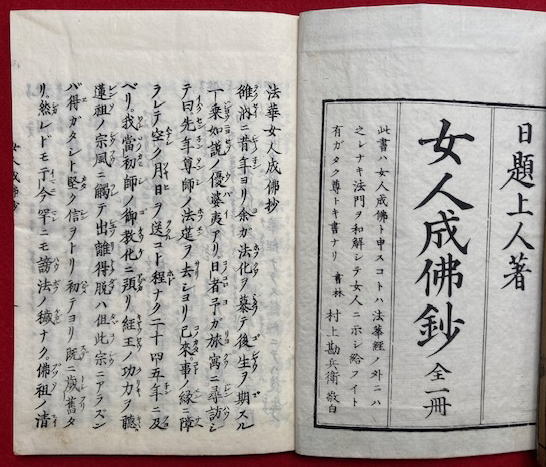 日題上人著
女人成佛鈔 全一冊
此書ハ女人成佛ト申スコトハ法華経ノ外ニハ
之レナキ法門ヲ和解シテ女人ニホシ給フイト
有ガタク尊トキ書ナリ 書林 村上勘兵衛敬白
法華女人成佛抄
雒汭ニ昔年ヨリ余ガ法化ヲ慕テ後生ヲ期スル
一乗如説ノ優婆夷アリ日者予ガ旅寓ニ尋訪シ
テ曰先年尊師ノ法莚ヲ去シヨリ已來事ノ縁ニ障
ラレテ空ク月日ヲ送コト程ナク二十四五年ニ及
ベリ。我當初師ノ御教化ニ預リ経王ノ功力ヲ聽
蓮祖ノ宗風ニ觸テ出離得脱ハ但此宗ニアラズン
バ得ガタシト堅ク信ヲトリ初テヨリ既ニ歳舊タ
リ。然レドモ于今罕ニモ謗法ノ穢ナク。佛祖ノ清
女人成佛抄